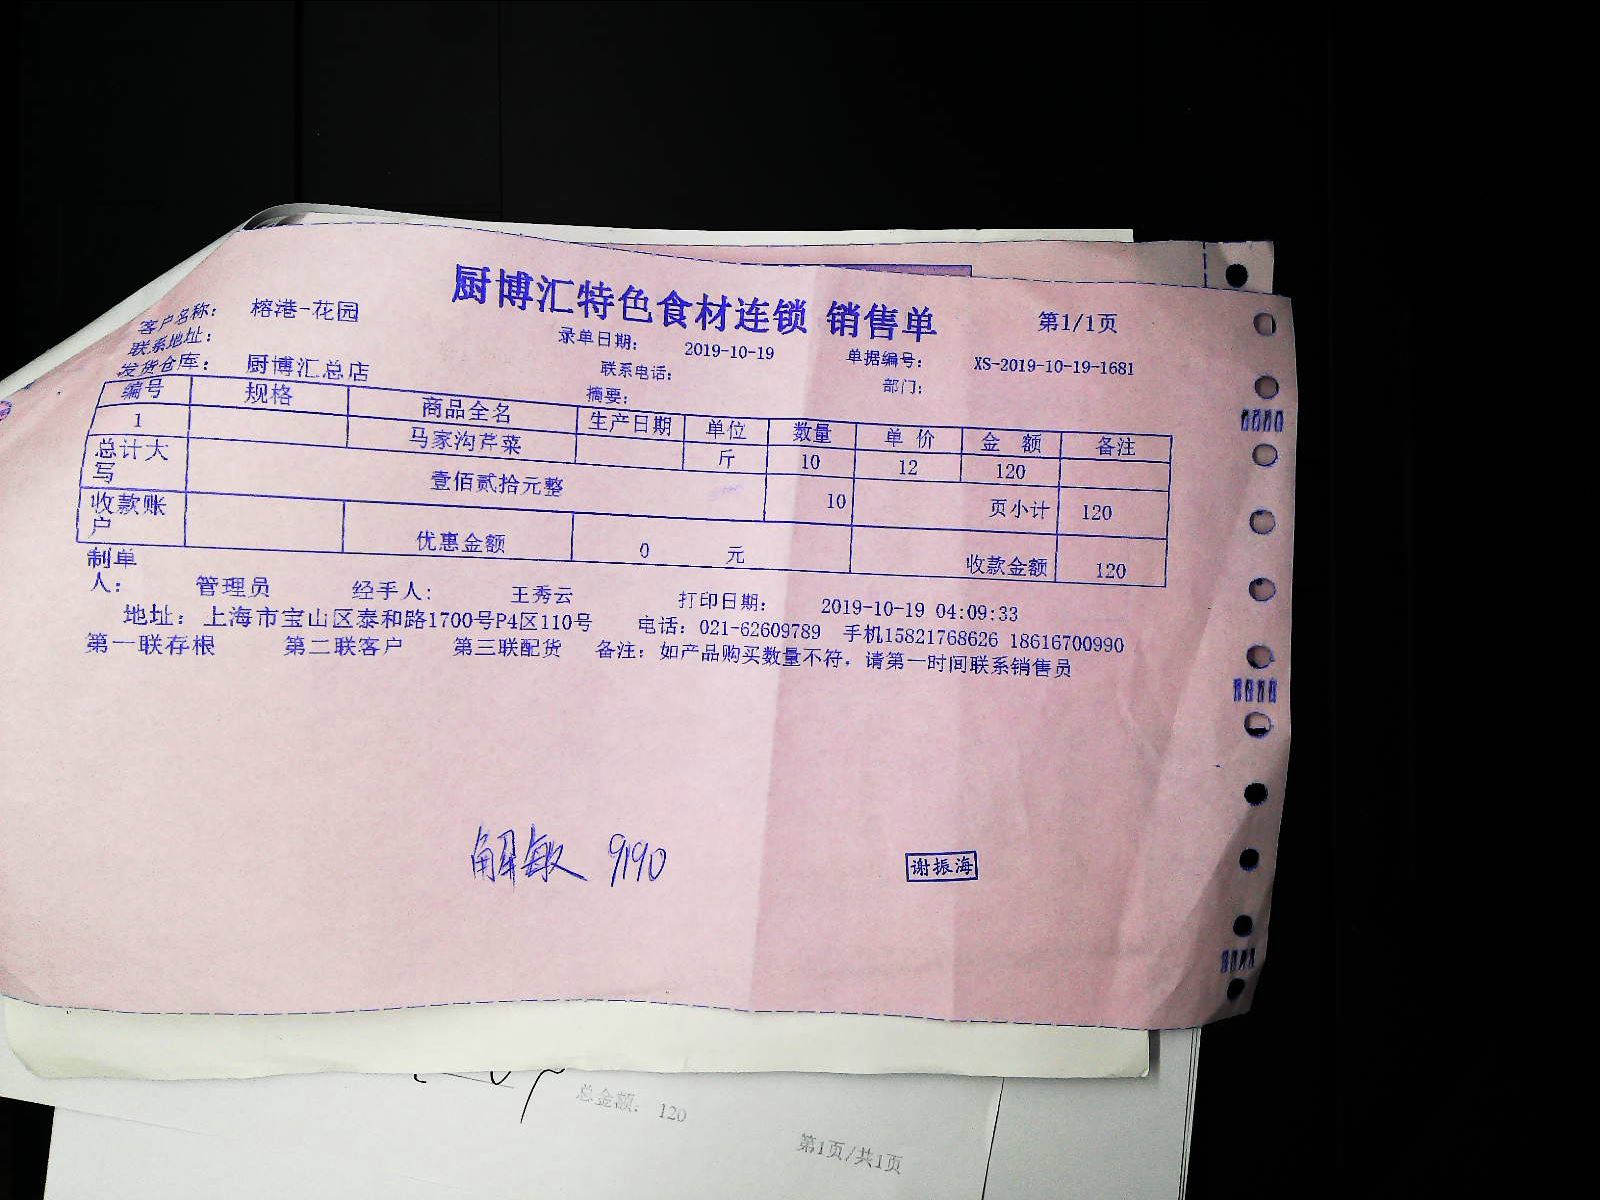 厨博汇特色食材连锁 销售单
第1/1页
客户名称: 榕港-花园 录单日期: 2019-10-19 单据编号: XS-2019-10-19-1681
联系地址: 联系电话: 部门:
发货仓库: 厨博汇总店 摘要:
编号 规格 商品全名 生产日期 单位 数量 单价 金额 备注
1 马家沟芹菜 斤 10 12 120
总计大写 壹佰贰拾元整 10 页小计 120
收款账户 优惠金额 0 元 收款金额 120
制单人: 管理员 经手人: 王秀云 打印日期: 2019-10-19 04:09:33
地址: 上海市宝山区泰和路1700号P4区110号 电话: 021-62609789 手机15821768626 18616700990
第一联存根 第二联客户 第三联配货 备注: 如产品购买数量不符，请第一时间联系销售员
解敏 9190
谢振海
总金额: 120
第1页/共1页